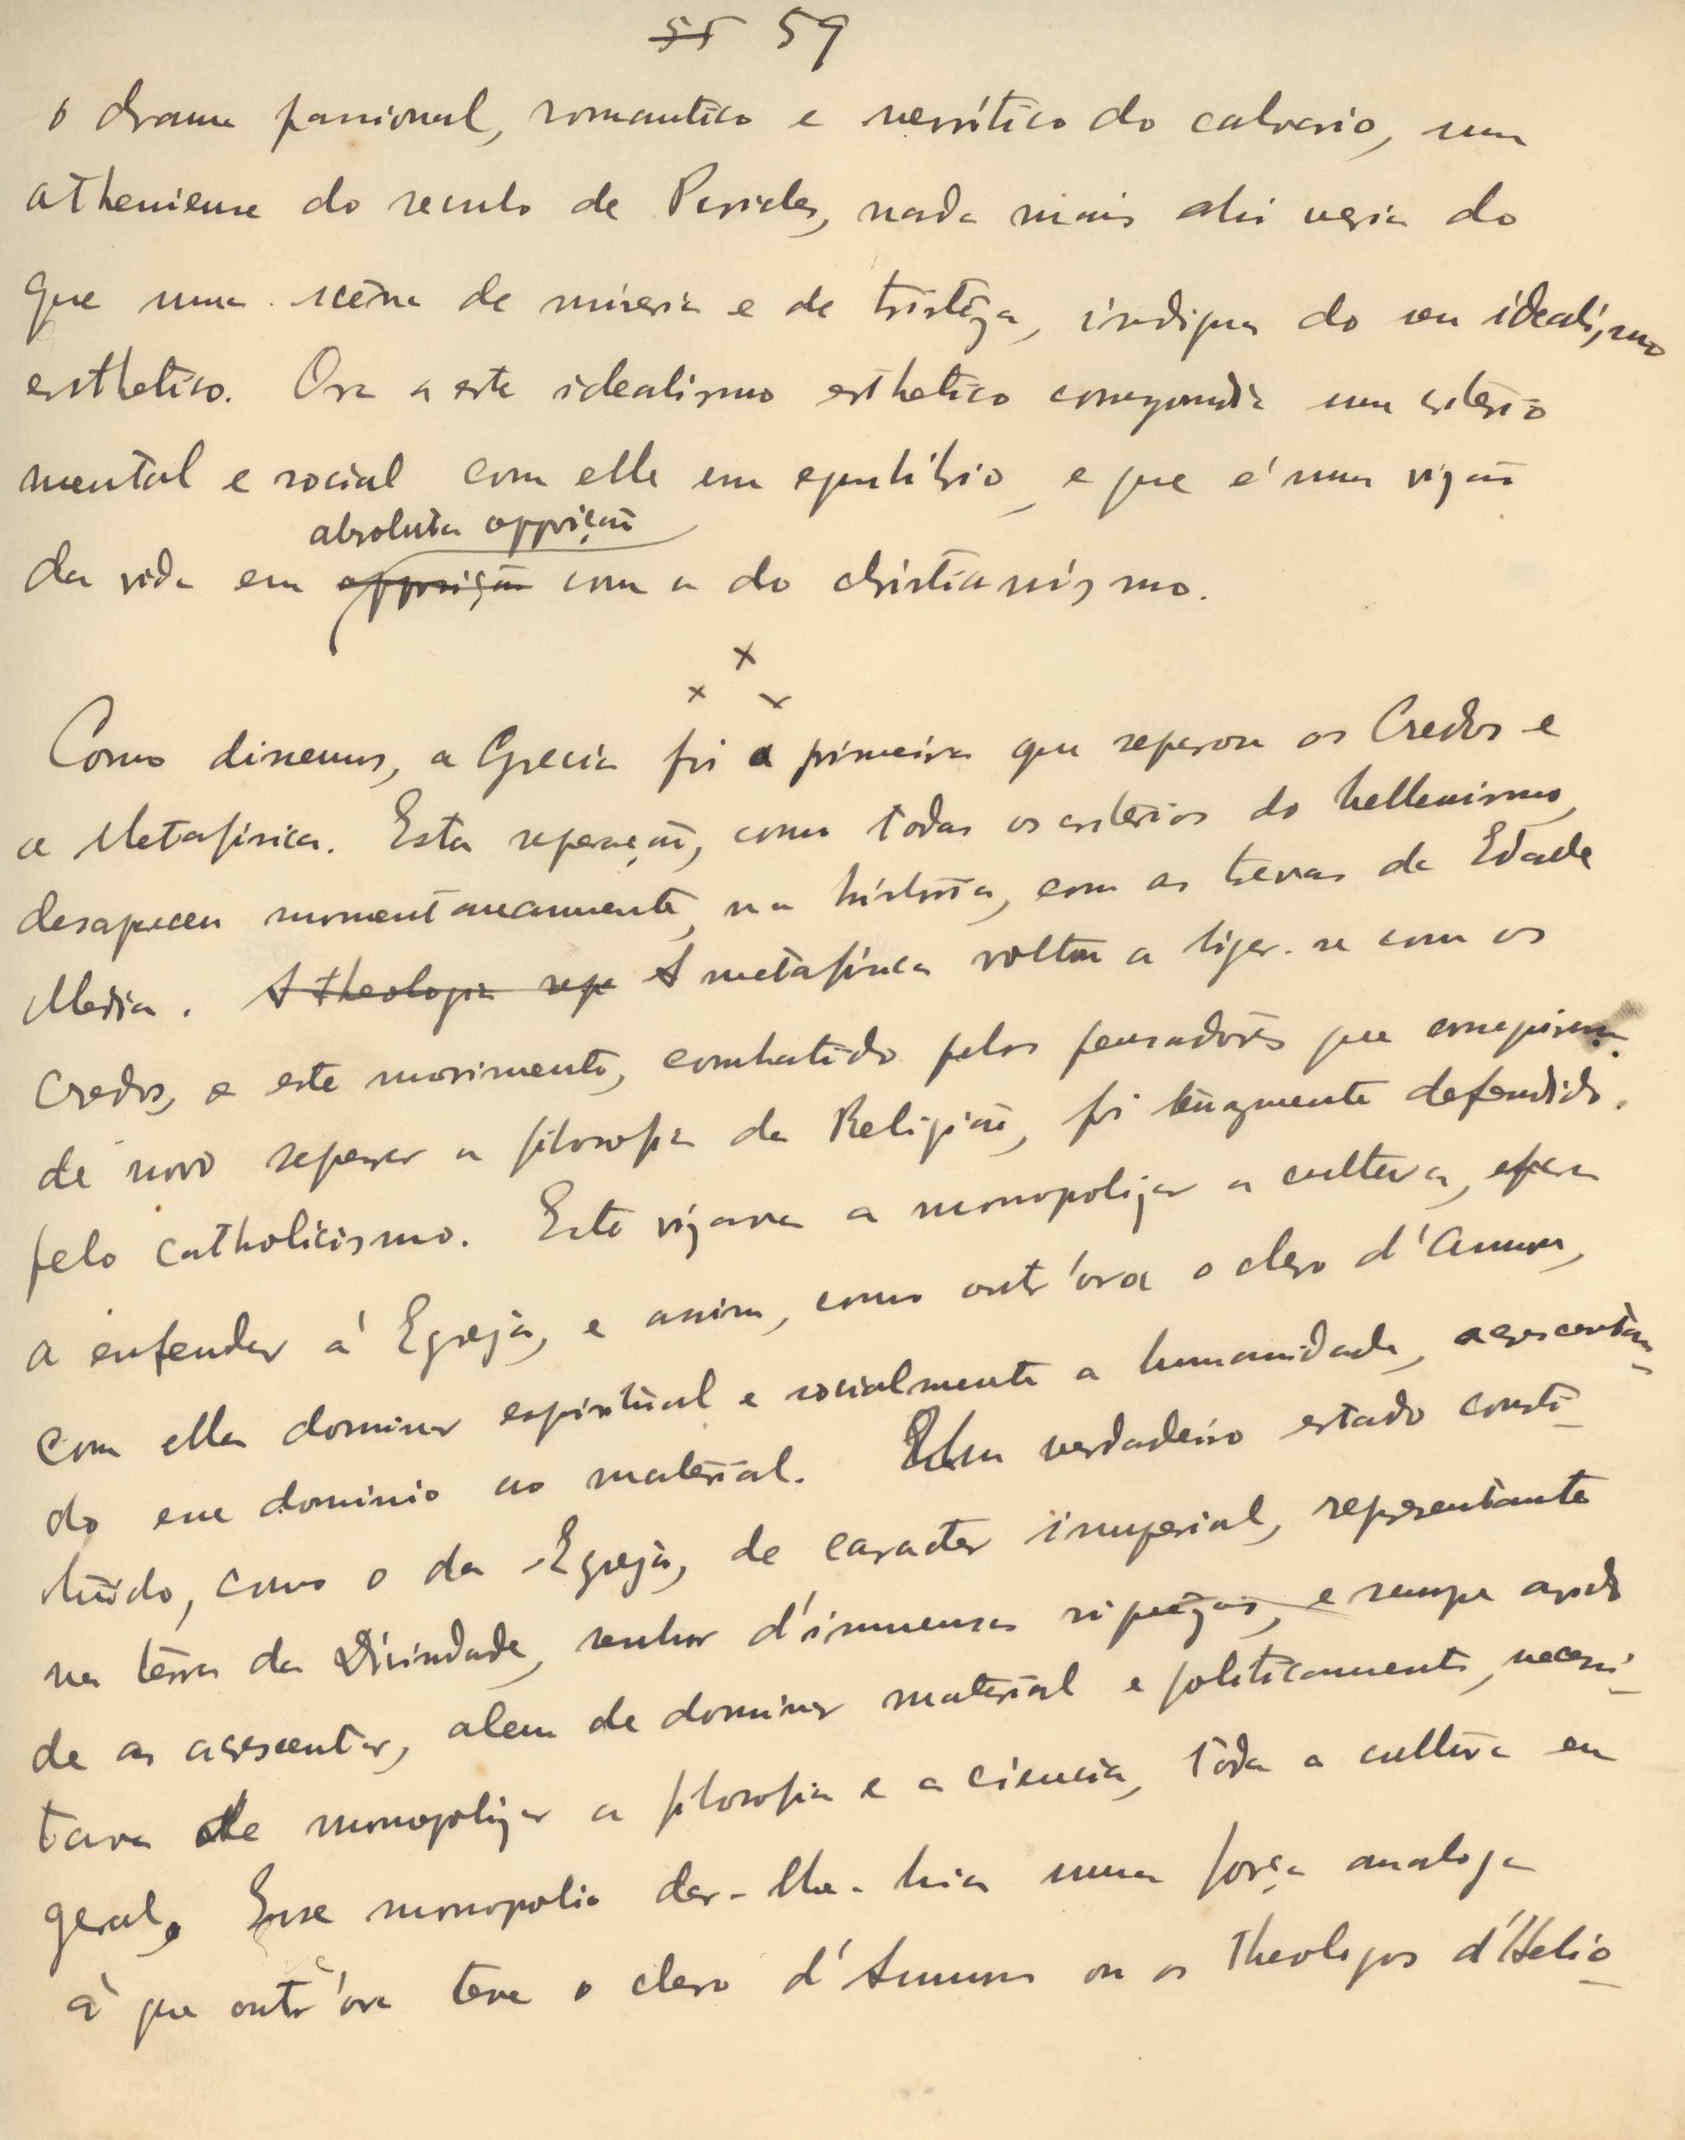 55 59
o drama passional, romantico e neurótico do calvario, um
atheniense do seculo de Pericles, nada mais ahi veria do
que uma scéna de miseria e de tristêza, indigna do seu idealismo
esthetico. Ora a este idealismo esthetico correspondia um criterio
mental e social com elle em equilibrio, e que é uma vizão
absoluta opposição
da vida em opposição com a do christianismo.
x
x x
Como dissemos, a Grecia foi a primeira que separou os Credos e
a Metafisica. Esta separação, como todos os criterios do hellenismo,
desapareceu momentaneamente, na historia, com as trevas da Edade
Media. A theologia sepa A metafisica voltou a ligar-se com os
Credos, e este movimento, combatido pelos pensadores que
de novo separar a filosofia da Religião, foi tenazmente defendido.
pelo catholicismo. Este vizava a monopolizar a cultura,
a enfeudar á Egreja, e assim, como outr'ora o clero d'Ammon,
com ella dominar espiritual e socialmente a humanidade, acrescentan-
do esse dominio ao material. Um verdadeiro estado consti-
tuido, como o da Egreja, de caracter imperial, representante
na terra da Divindade, senhor d'immensas riquêzas, e sempre avido
de as acrescentar, alem de dominar material e politicamente, necessi-
tava de monopolizar a filosofia e a ciencia, toda a cultura em
geral. Esse monopolio dar-lhe-hia uma força analoga
à que outr'ora teve o clero d'Ammon ou os Theologos d'Helio-